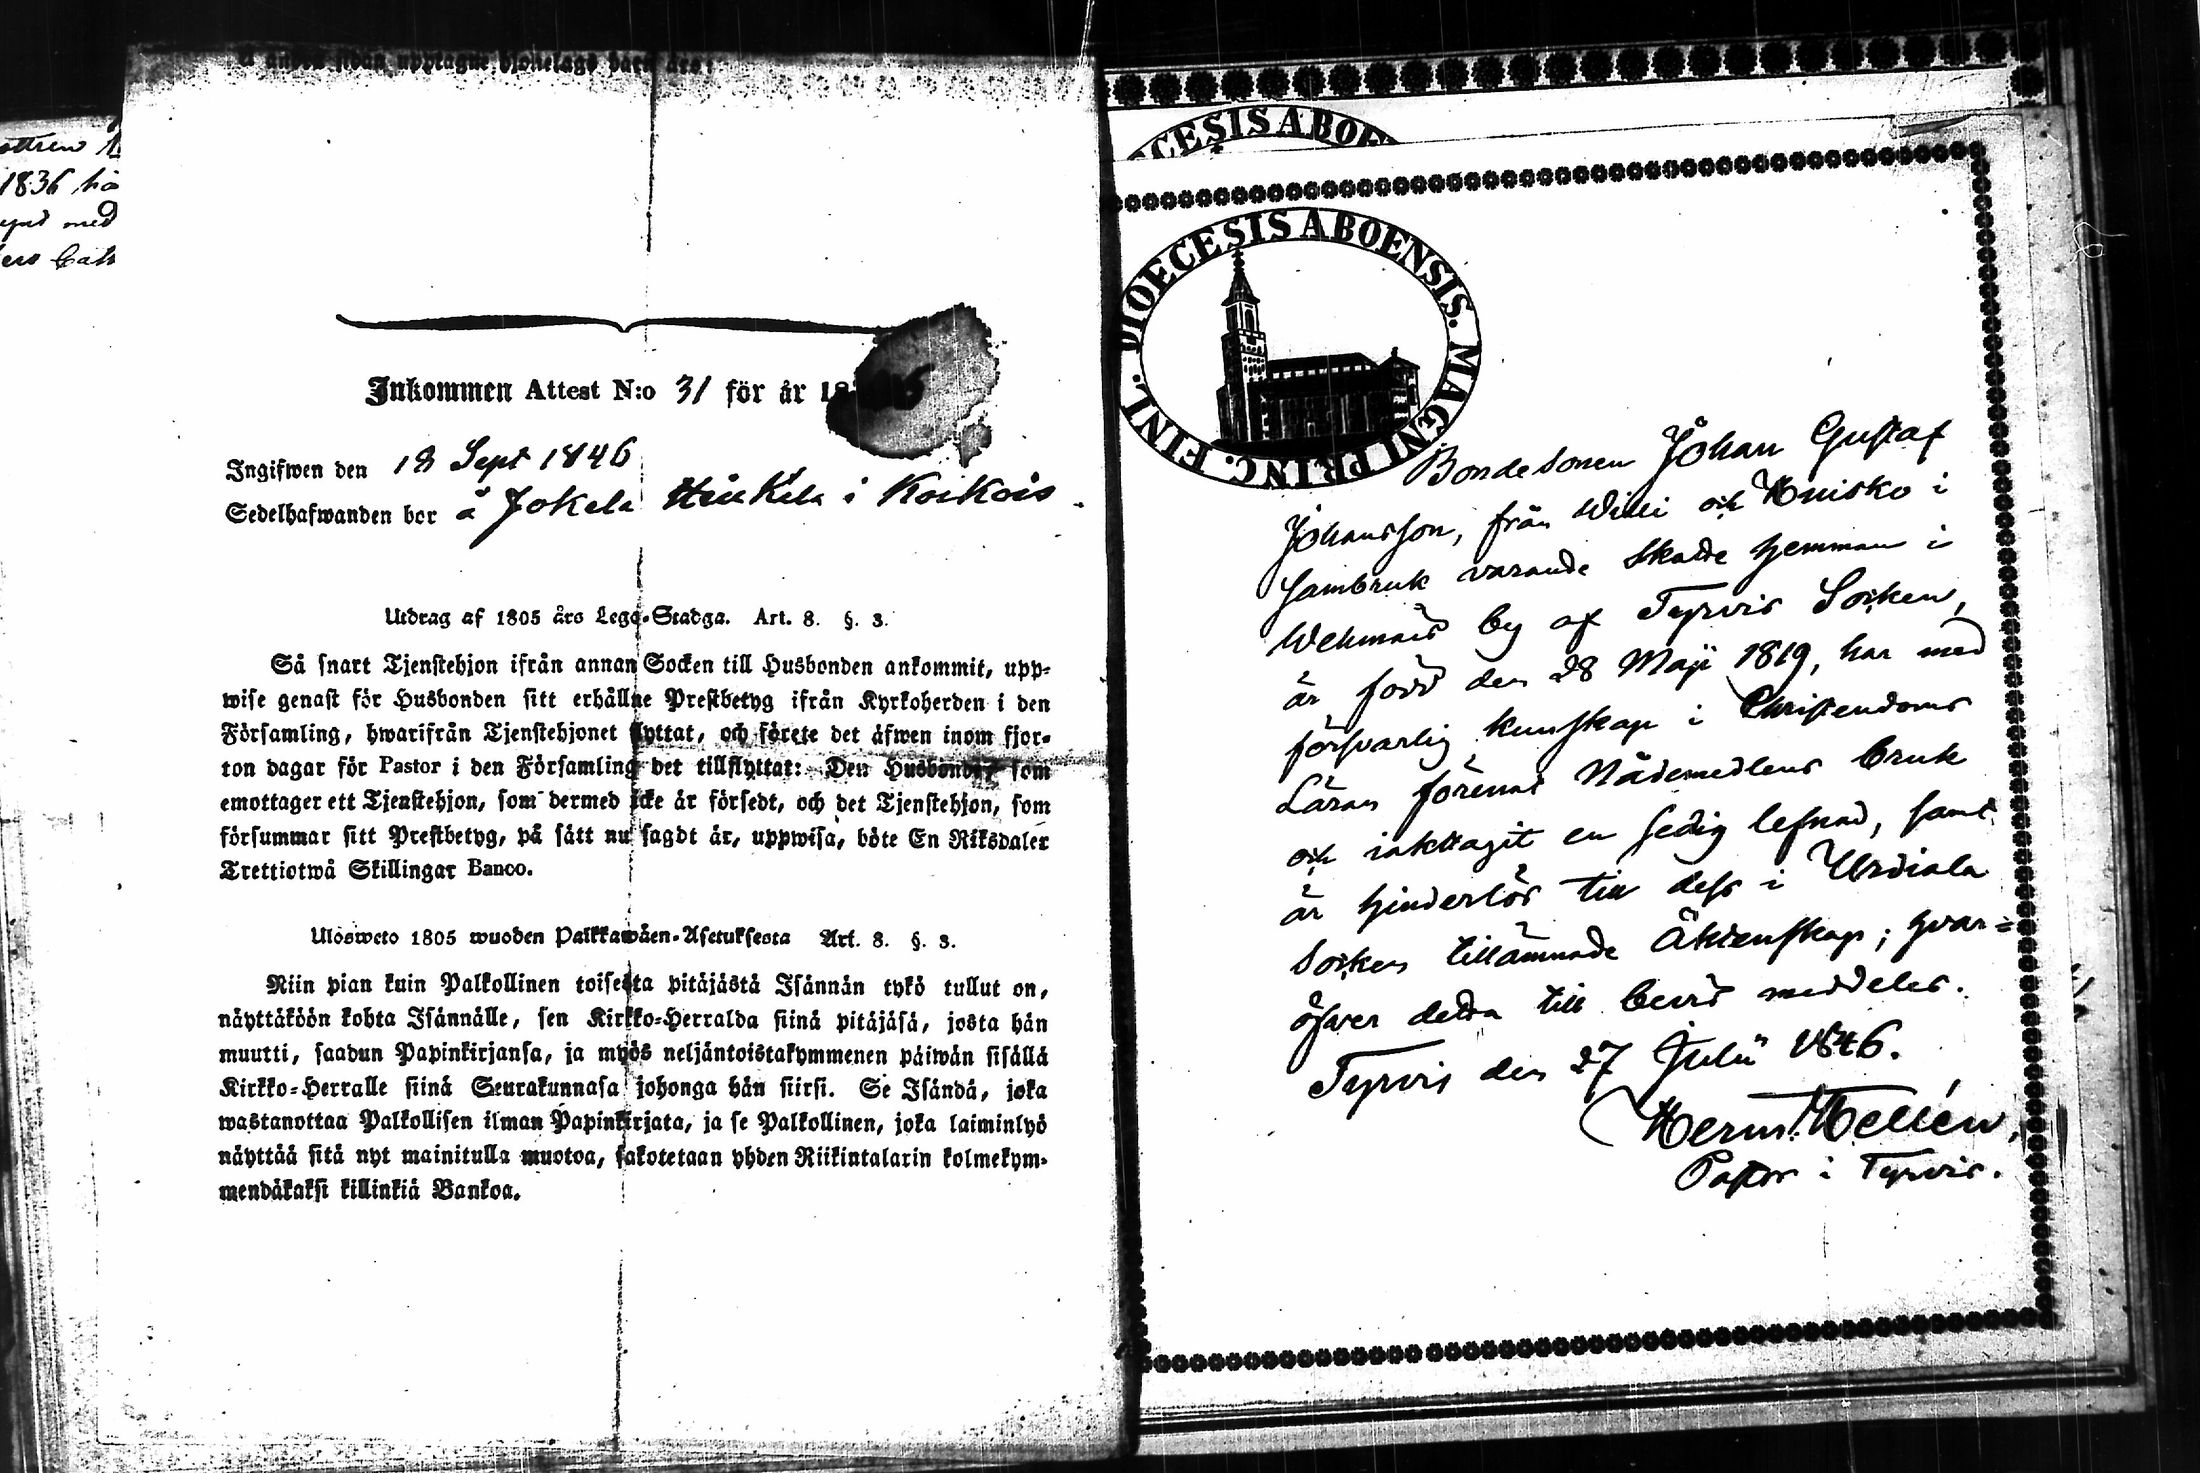 1836
med
Inkommen Attest N:o 31 för år 18
Ingifwen den 18 Sept 1846
Sedelhafwanden bor å Jokela i Koikois
Utdrag af 1805 års Lego-Stadga. Art. 8. §. 3.
Så snart Tjenstehjon ifrån annan Socken till Husbonden ankommit, upp-
wise genast för Husbonden sitt erhållne Prestbetyg ifrån Kyrkoherden i den
Församling, hwarifrån Tjenstehjonet flyttat, och förete det äfwen inom fjor-
ton dagar för Pastor i den Församling det tillflyttat: Den Husbonde, som
emottager ett Tjenstehjon, som dermed icke är försedt, och det Tjenstehjon, som
försummar sitt Prestbetyg, på sätt nu sagdt är, uppwisa, böte En Riksdaler
Trettiotwå Skillingar Banco.
Ulosweto 1805 wuoden Palkkawäen-Asetuksesta Art. 8. §. 3.
Niin pian kuin Palkollinen toisesta pitäjästä Isännän tykö tullut on,
näyttäköön kohta Isännälle, sen Kirkko-Herralda siinä pitäjäsä, josta hän
muutti, saadun Papinkirjansa, ja myös neljäntoistakymmenen päiwän sisällä
Kirkko-Herralle siinä Seurakunnasa johonga hän siirsi. Se Isändä, joka
wastanottaa Palkollisen ilman Papinkirjata, ja se Palkollinen, joka laiminlyö
näyttää sitä nyt mainitulla muotoa, sakotetaan yhden Riikintalarin kolmekym-
mendäkaksi killinkiä Bankoa.
DIOECESIS ABOENSIS
DIOECESIS ABOENSIS. MAGNI PRINC. FINL.
Bondesonen Johan Gustaf
Johansson, från Willi och Knisko i
Sambruk varande Skatte hemman i
Wehmais by af Tyrvis Socken,
är född den 28 Maji 1819, har med
försvarlig kunskap i Christendoms
Läran förenat Nådemedlens bruk
och iakttagit en sedig lefnad, samt
är hinderlös till dess i Urdiala
Socken tillämnade Äktenskap; hvar=
öfwer detta till bevis meddelas.
Tyrvis den 27 Julii 1846.
Herm. Hellén,
Pastor i Tyrvis.